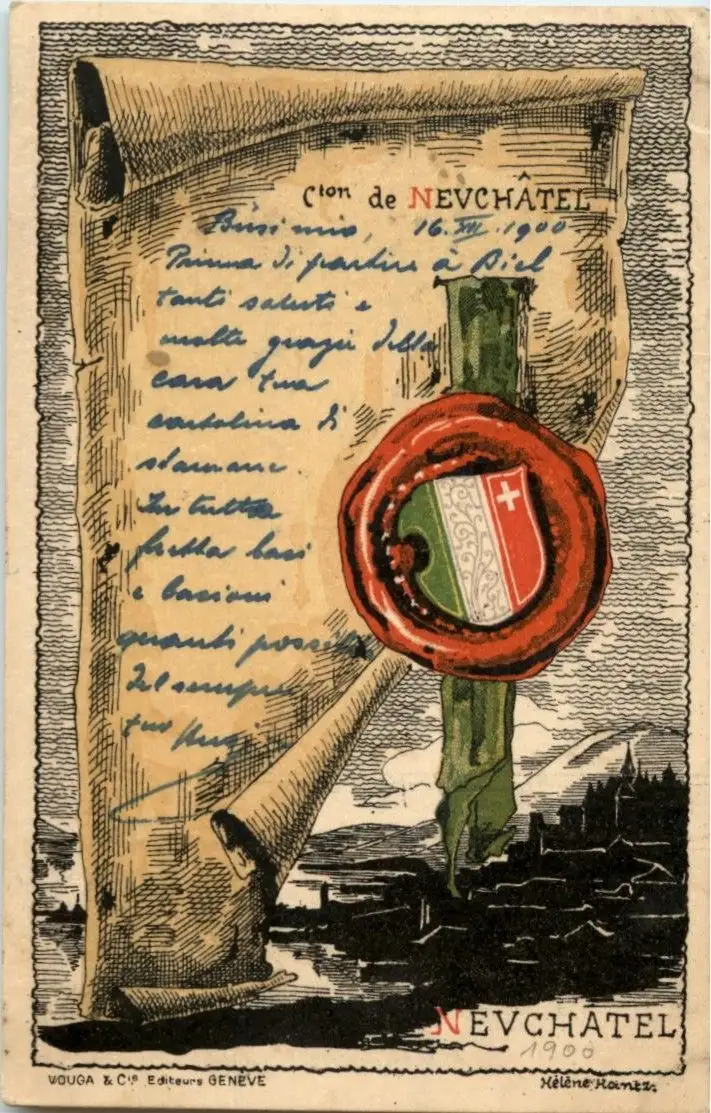 Cton de NEVCHÂTEL
mio, 16.XII.1900
Prima di partire à Biel
tanti saluti e
molte grazie della
cara tua
cartolina di
stamane
In tutta
fretta baci
e bacioni
quanti possibile
del sempre
tuo
NEVCHATEL
1900
VOUGA & Cie Editeurs GENÈVE
Hélène Hantz.